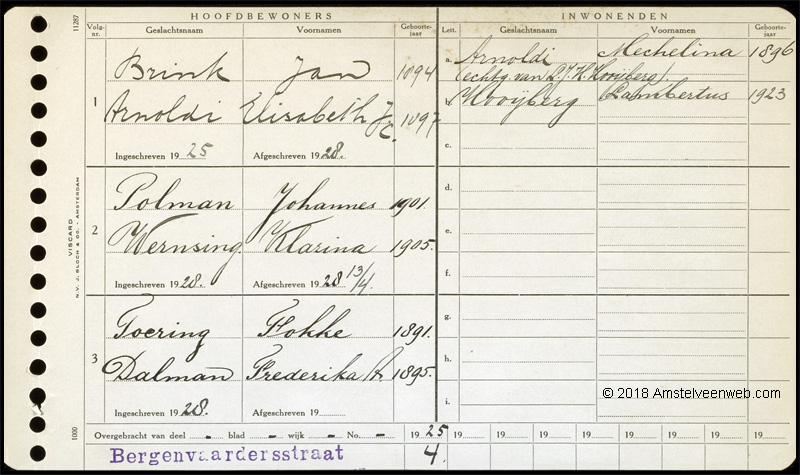 HOOFDBEWONERS INWONENDEN
Volg-nr. Geslachtsnaam Voornamen Geboorte-jaar Lett. Geslachtsnaam Voornamen
11287
1
Brink Jan 1894
Arnoldi Elisabeth J.C. 1897
Ingeschreven 1925 Afgeschreven 1928.
2
Polman Johannes 1901
Wernsing Klarina 1905.
Ingeschreven 1928. Afgeschreven 1928 13/4.
3
Toering Fokke 1891.
Dalman Frederika A. 1895.
Ingeschreven 1928. Afgeschreven 19
a. Arnoldi Mechelina 1896
(echtg. van L.J.H. Hooijberg).
b. Hooijberg Lambertus 1923
c.
d.
e.
f.
g.
h.
i.
VISCARD
N.V. J. BLOCH & CO. - AMSTERDAM
1000
Overgebracht van deel - blad - wijk - No. - 1925 19 19 19 19 19 19 19 19
Bergenvaardersstraat 4.
© 2018 Amstelveenweb.com